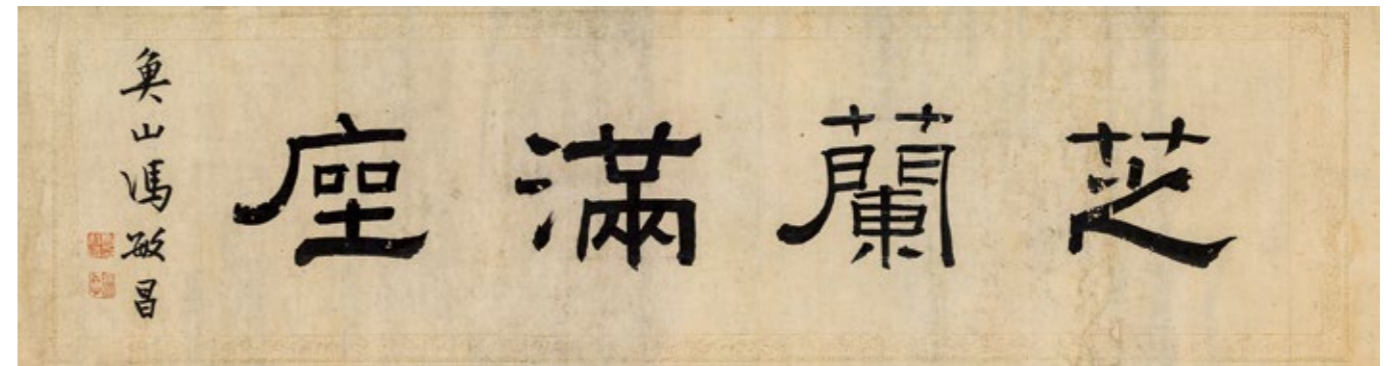 芝蘭滿座
魚山馮敏昌